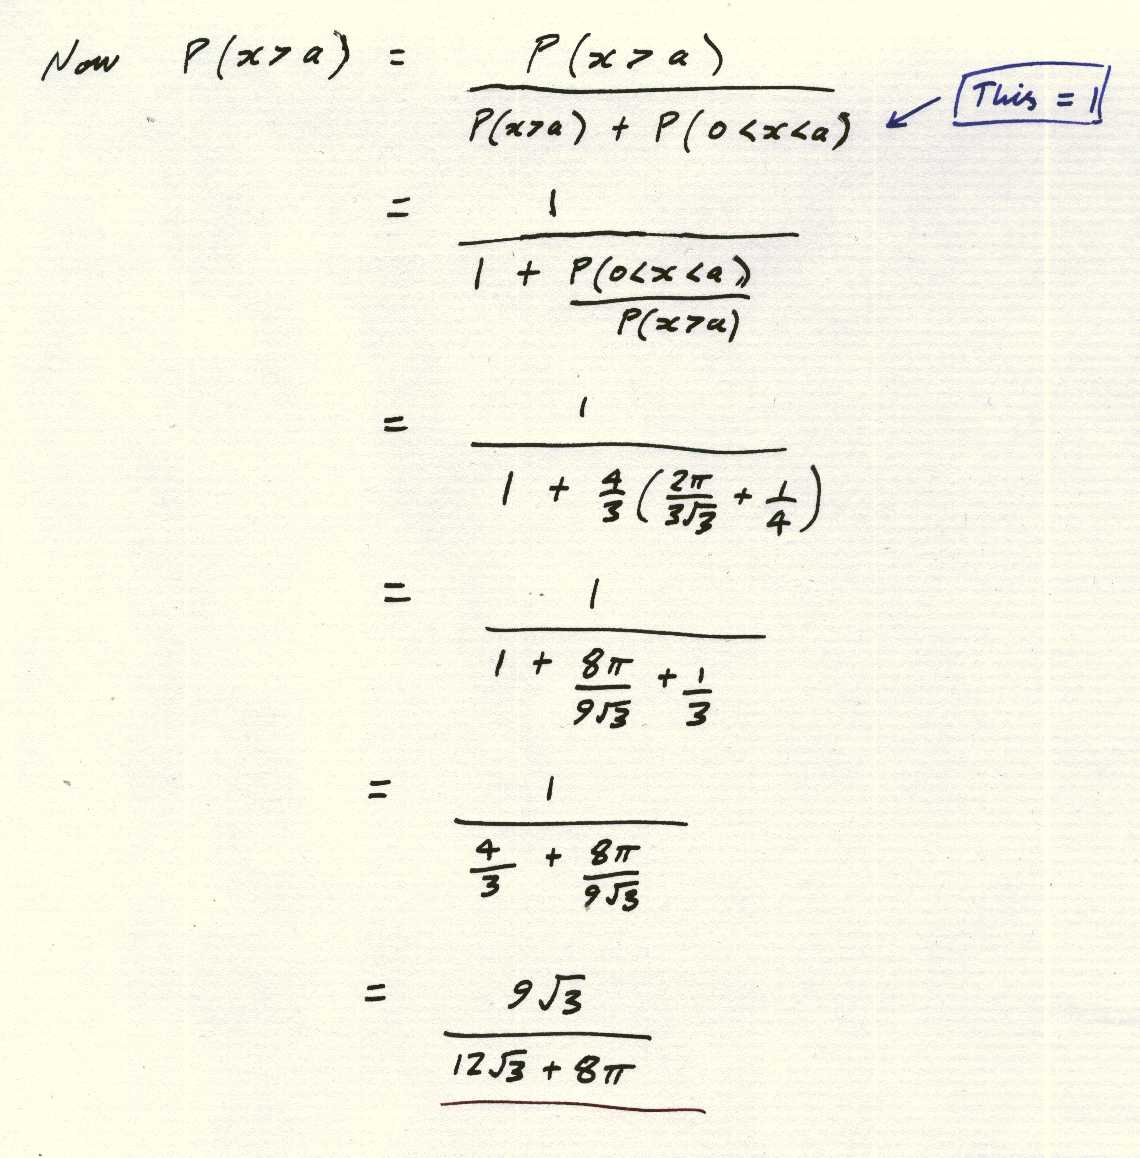 Now P(x > a) = P(x > a)
P(x>a) + P(0<x<a)
This = 1
= 1
1 + P(0<x<a)
P(x>a)
= 1
1 + 4/3 (2π/3√3 + 1/4)
= 1
1 + 8π/9√3 + 1/3
= 1
4/3 + 8π/9√3
= 9√3
12√3 + 8π